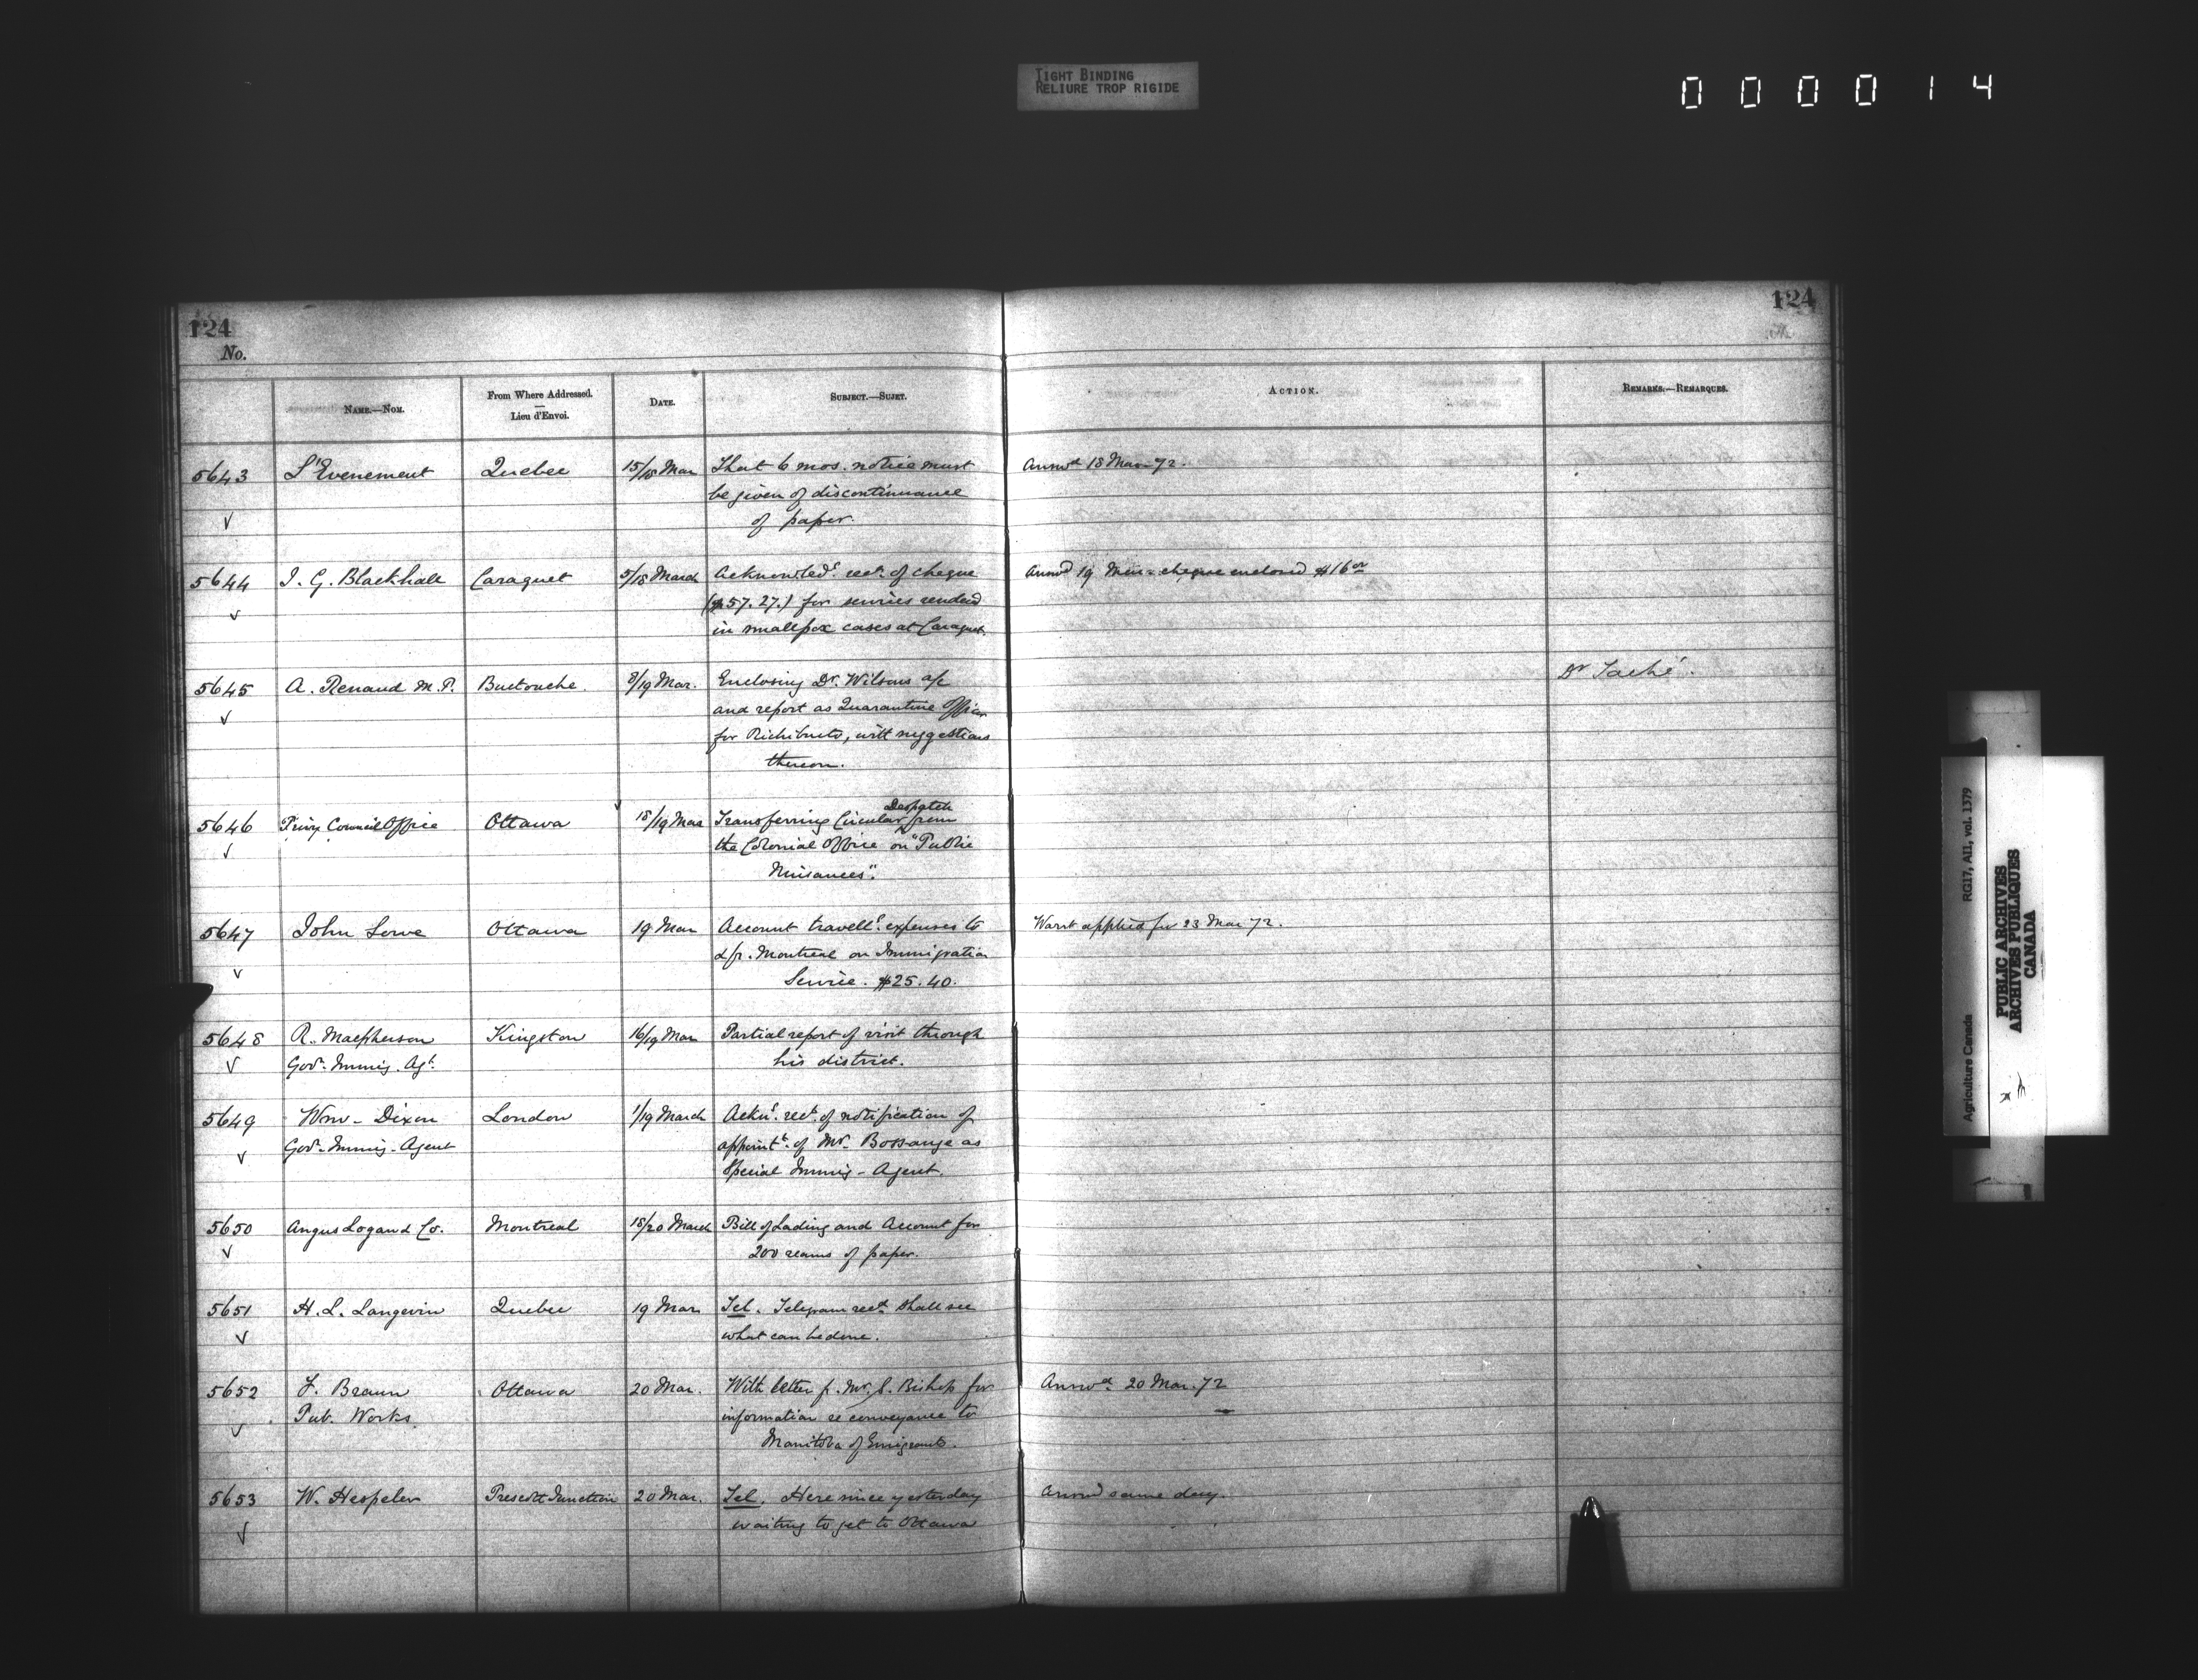 TIGHT BINDING
RELIURE TROP RIGIDE
0 0 0 0 1 4
124
124
No.
NAME.—NOM.
From Where Addressed.
Lieu d'Envoi.
DATE.
SUBJECT.—SUJET.
ACTION.
REMARKS.—REMARQUES.
5643 L'Evenement Quebec 15/18 Mar That 6 mos. notice must Answd 18 Mar 72.
be given of discontinuance
of paper.
5644 J. G. Blackhall Caraquet 5/18 March Acknowledg. rect. of cheque Answd 19 Mar - cheque enclosed $16.00
($57.27.) for services rendered
in smallpox cases at Caraquet.
5645 A. Renaud M.P. Buctouche. 8/19 Mar. Enclosing Dr. Wilsons a/c Dr Taché.
and report as Quarantine Officer
for Richibucto, with suggestions
thereon.
5646 Privy Council Office Ottawa 18/19 Mar Transferring Circular Despatch from
the Colonial Office on "Public
Nuisances".
5647 John Lowe Ottawa 19 Mar Account travellg. expenses to Warrt applied for 23 Mar 72.
& fr. Montreal on Immigration
Service. $25.40.
5648 R. Macpherson Kingston 16/19 Mar Partial report of visit through
Govt. Immig. Agt. his district.
5649 Wm. Dixon London 1/19 March Ackg. rect. of notification of
Govt. Immig. Agent appoint. of Mr. Bossange as
Special Immig. Agent.
5650 Angus Logan & Co. Montreal 18/20 March Bill of Lading and Account for
200 reams of paper.
5651 H. L. Langevin Quebec 19 Mar Tel. Telegram recd. Shall see
what can be done.
5652 F. Braun Ottawa 20 Mar. With letter f. Mr. S. Bishop for Answd. 20 Mar. 72
Pub. Works. information re conveyance to
Manitoba of Emigrants.
5653 W. Hespeler Prescott Junction 20 Mar. Tel. Here since yesterday Answd same day.
waiting to get to Ottawa
Agriculture Canada RG17, AII, vol. 1379
PUBLIC ARCHIVES
ARCHIVES PUBLIQUES
CANADA